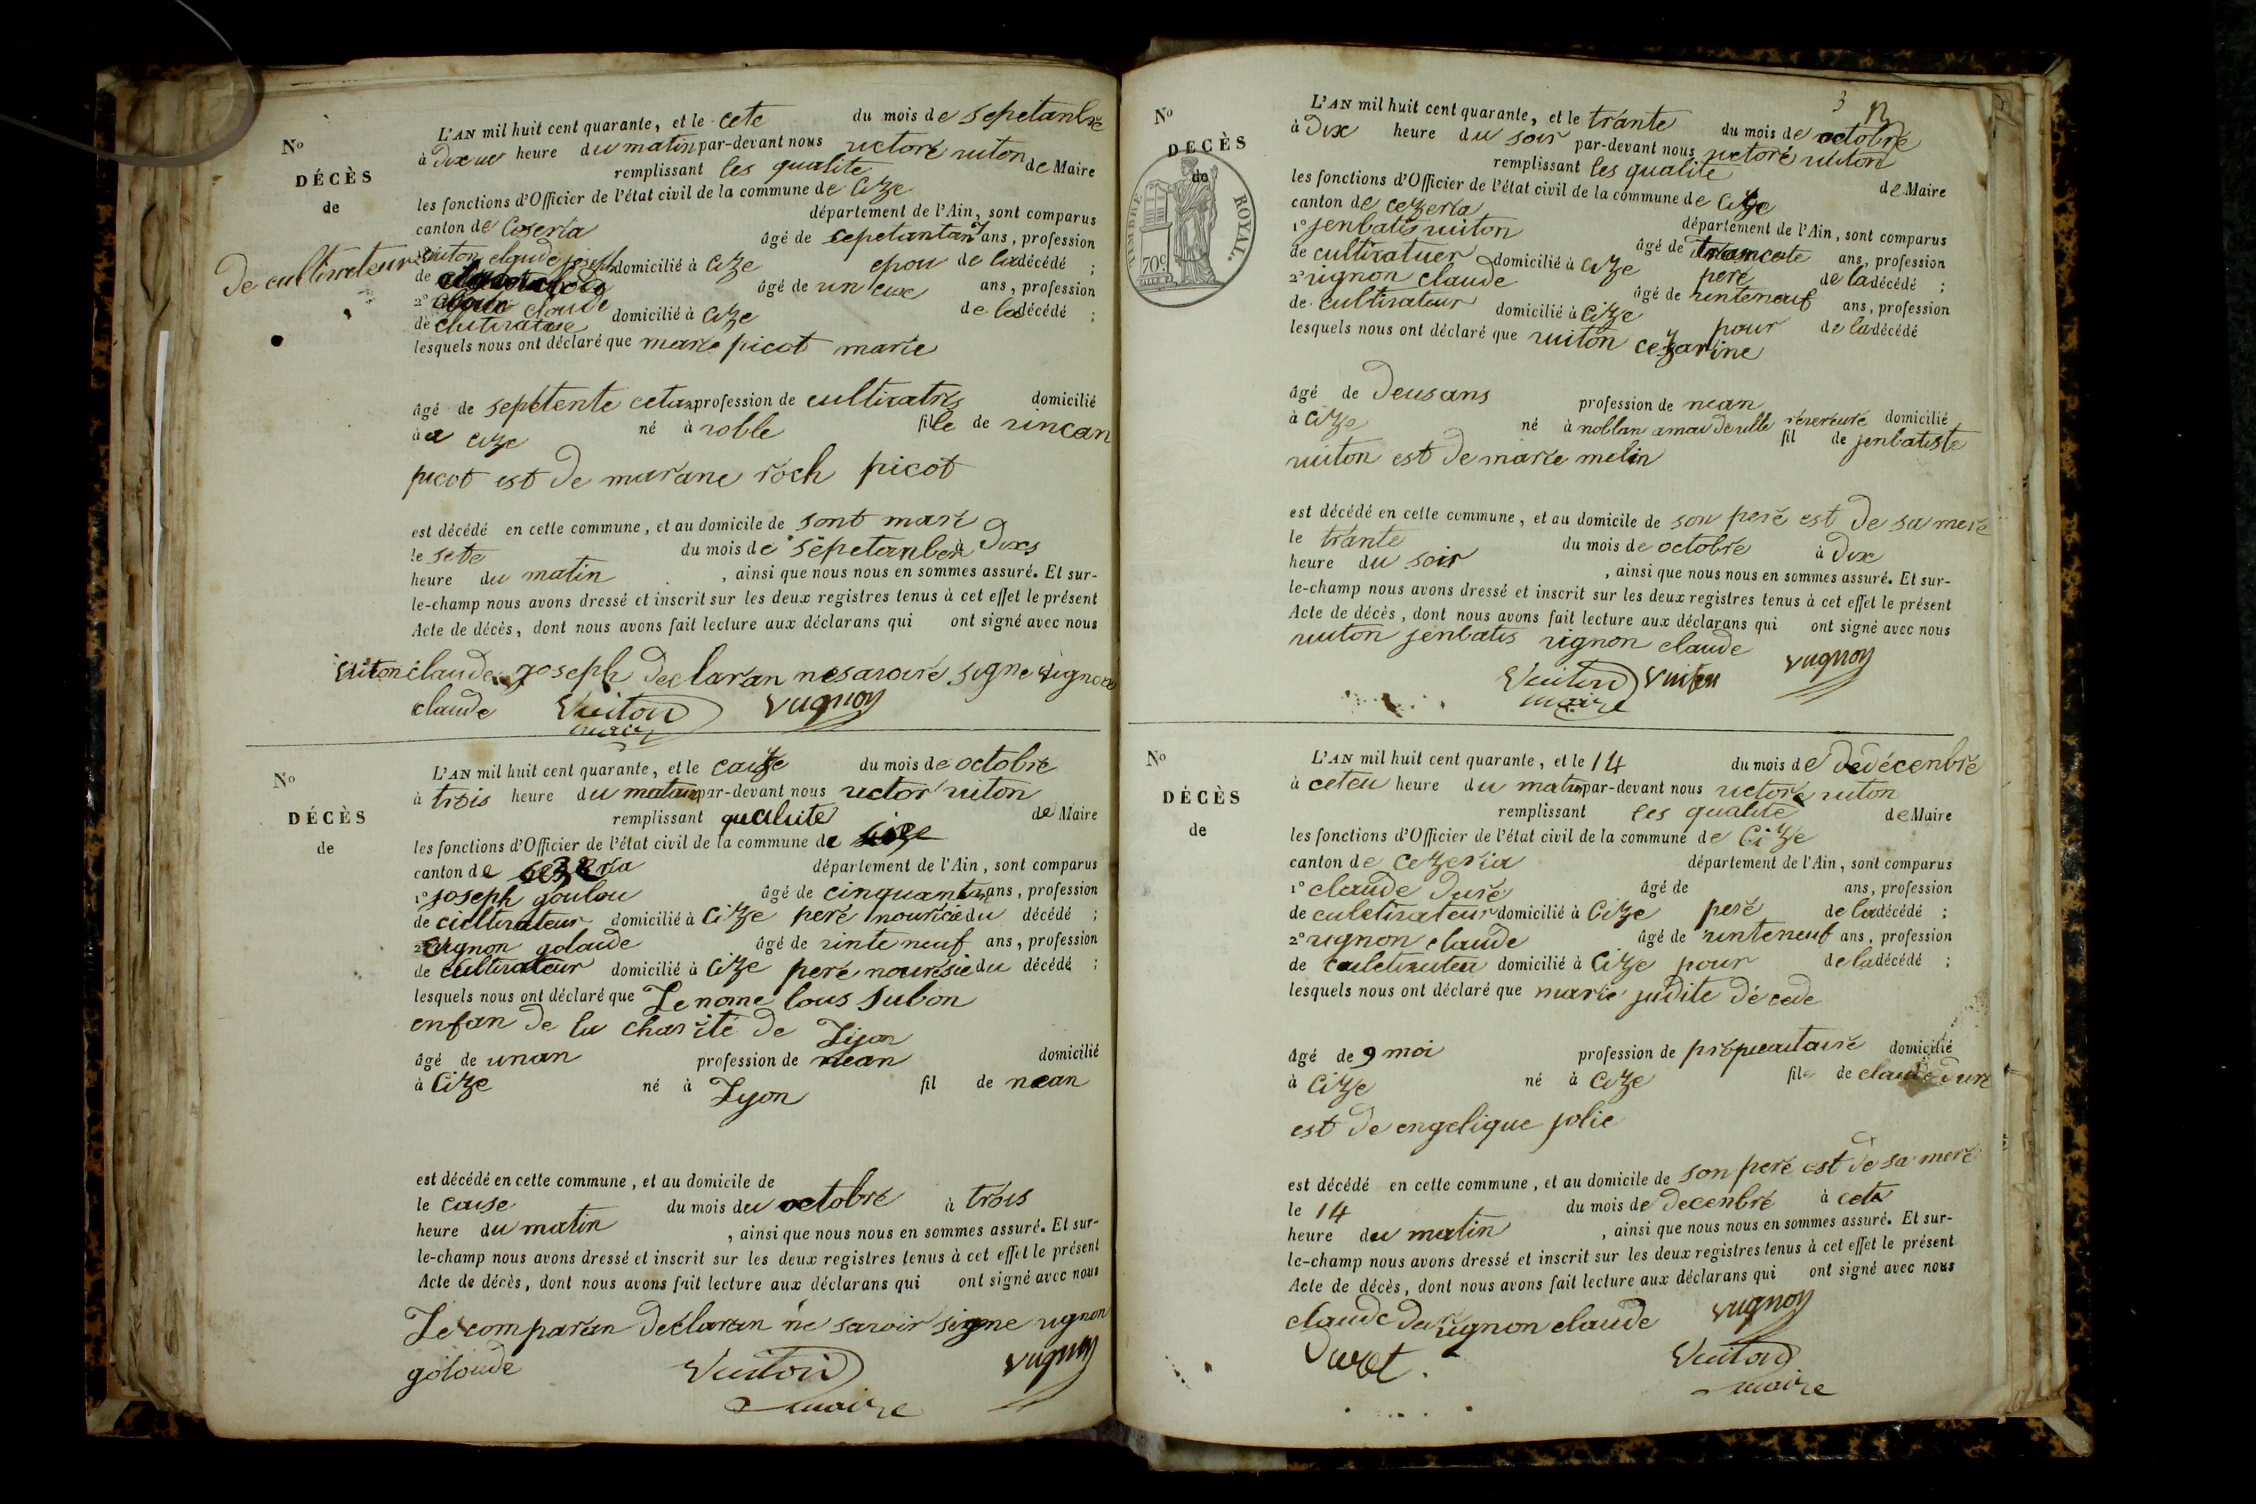 N°
DÉCÈS
de
L'AN mil huit cent quarante, et le cete du mois de sepetanbre
à dix eu heure du matin par-devant nous victoré viton
remplissant les qualite de Maire
les fonctions d'Officier de l'état civil de la commune de Cize
canton de Coseria département de l'Ain, sont comparus
1° viton claude joseph âgé de sepetantan ans, profession
de cultivateur
de domicilié à Cize epou de la décédé ;
2° claude âgé de ans, profession
de domicilié à Cize de la décédé ;
lesquels nous ont déclaré que marie picot marie
âgé de sepetente cetan profession de cultivatris domicilié
à a cize né à roble file de vincan
picot est de marane roch picot
est décédé en cette commune, et au domicile de sont mare
le sete du mois de sepetanber à dixs
heure du matin , ainsi que nous nous en sommes assuré. Et sur-
le-champ nous avons dressé et inscrit sur les deux registres tenus à cet effet le présent
Acte de décès, dont nous avons fait lecture aux déclarans qui ont signé avec nous
viton claude joseph declaran nesavoire signe vignon
claude Vuiton Vugnon
maire
N°
DÉCÈS
de
L'AN mil huit cent quarante, et le cauze du mois de octobre
à trois heure du matin par-devant nous victor viton
remplissant qualite de Maire
les fonctions d'Officier de l'état civil de la commune de size
canton de sezeria département de l'Ain, sont comparus
1° joseph goulou âgé de cinquantan ans, profession
de ciultivateur domicilié à Cize peré nouricie du décédé ;
2° vignon golaude âgé de vinte neuf ans, profession
de cultivateur domicilié à Cize peré nourésie du décédé ;
lesquels nous ont déclaré que Le nome lous Subon
enfan de la charité de Lion
âgé de unan profession de nean domicilié
à Cize né à Lyon fil de nean
est décédé en cette commune, et au domicile de
le couse du mois deu octobré à trois
heure du matin , ainsi que nous nous en sommes assuré. Et sur-
le-champ nous avons dressé et inscrit sur les deux registres tenus à cet effet le présent
Acte de décès, dont nous avons fait lecture aux déclarans qui ont signé avec nous
Le comparan declaran ne savoir signe vignon
goloude Vuiton Vugnon
maire
3
N°
DÉCÈS
de
TIMBRE ROYAL.
70c
L'AN mil huit cent quarante, et le trante du mois de octobré
à dix heure du soir par-devant nous victoré viiton
remplissant les qualite de Maire
les fonctions d'Officier de l'état civil de la commune de Cize
canton de cezeria département de l'Ain, sont comparus
1° jenbatis viiton âgé de ans, profession
de cultivatuer domicilié à Cize peré de la décédé ;
2° vignon claude âgé de vinteneuf ans, profession
de cultivateur domicilié à Cize pour de la décédé
lesquels nous ont déclaré que viiton cezarine
âgé de deusans profession de nean domicilié
à Cize né à noblan fil de jenbatiste
viiton est de marie melin
est décédé en cette commune, et au domicile de son peré est de sa meré
le trante du mois de octobre à dix
heure du soir , ainsi que nous nous en sommes assuré. Et sur-
le-champ nous avons dressé et inscrit sur les deux registres tenus à cet effet le présent
Acte de décès, dont nous avons fait lecture aux déclarans qui ont signé avec nous
viiton jenbatis vignon claude Vugnon
Vuiton Vuiton
maire
N°
DÉCÈS
de
L'AN mil huit cent quarante, et le 14 du mois de dedécenbré
à ceteu heure du matin par-devant nous victoré viton
remplissant les qualite de Maire
les fonctions d'Officier de l'état civil de la commune de Cize
canton de cezeria département de l'Ain, sont comparus
1° claude duré âgé de ans, profession
de culetivateur domicilié à Cize peré de la décédé ;
2° vignon claude âgé de vinteneuf ans, profession
de culetivateu domicilié à Cize pour de la décédé ;
lesquels nous ont déclaré que marie judite décede
âgé de 9 moi profession de propieataire domicilié
à Cize né à Cize file de claude duré
est de engelique jolie
est décédé en cette commune, et au domicile de son peré est de sa meré
le 14 du mois de decenbré à cete
heure du matin , ainsi que nous nous en sommes assuré. Et sur-
le-champ nous avons dressé et inscrit sur les deux registres tenus à cet effet le présent
Acte de décès, dont nous avons fait lecture aux déclarans qui ont signé avec nous
claude duré vignon claude Vugnon
Duret. Vuiton
maire